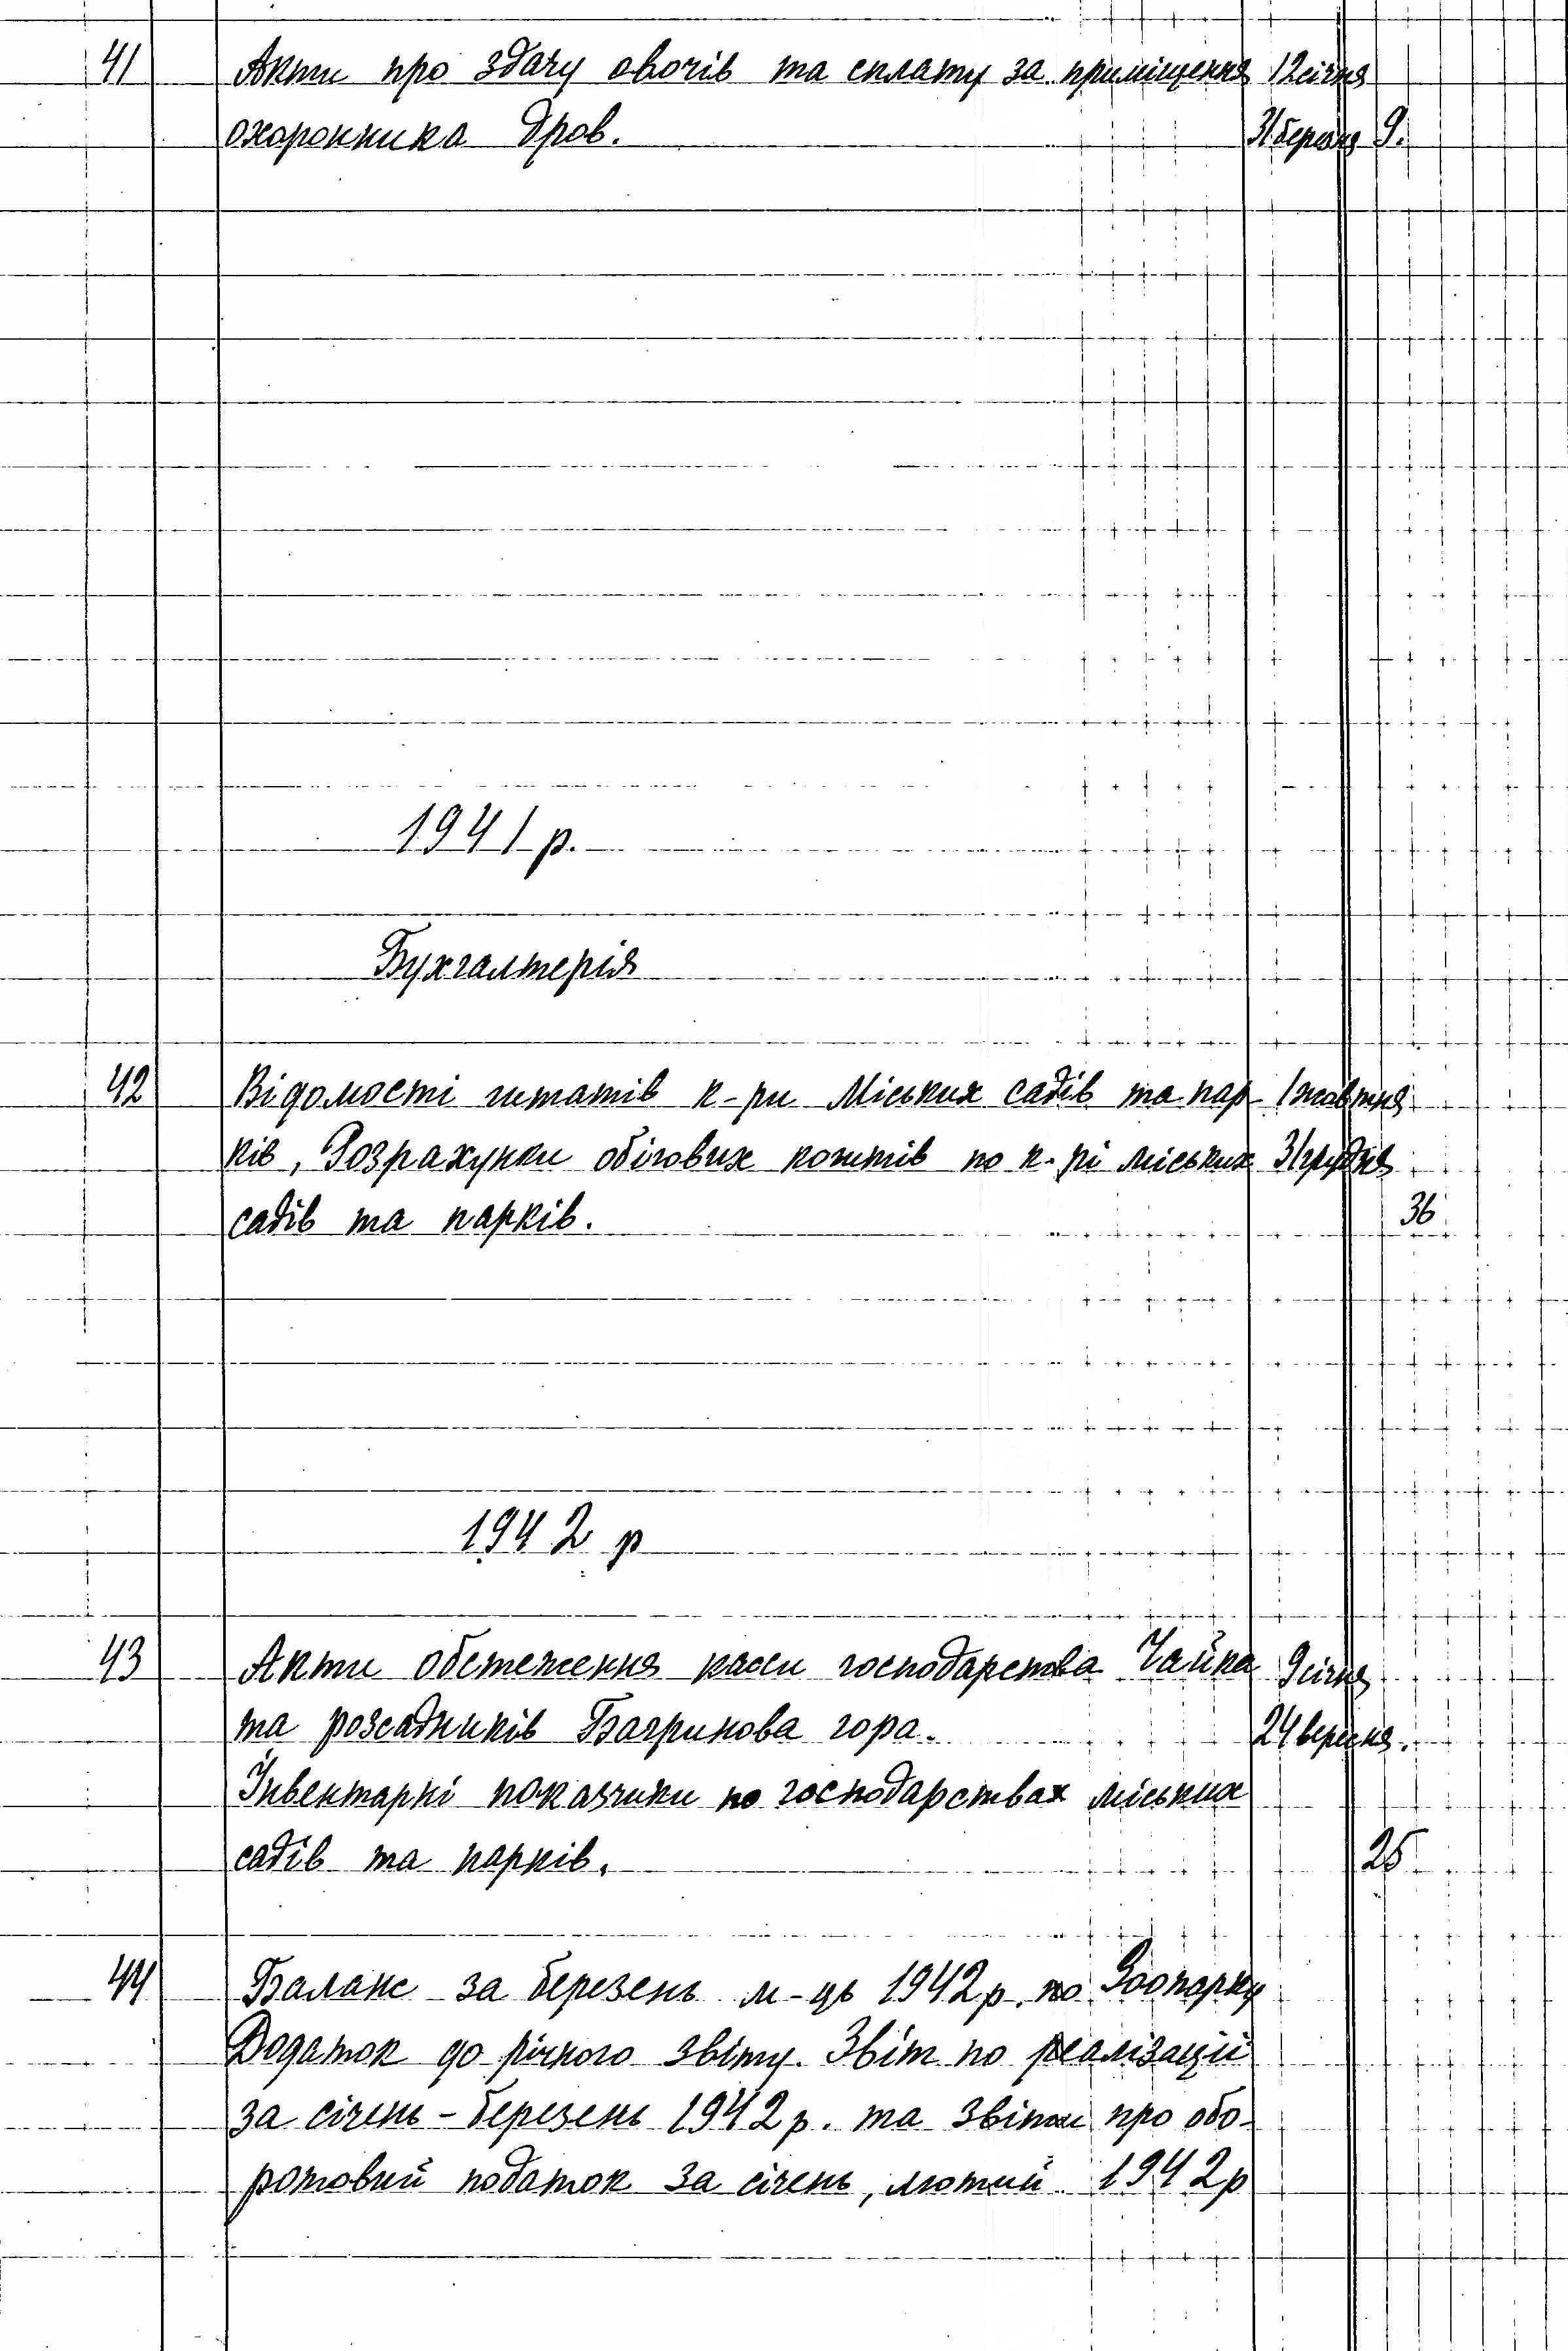 41 Акти про здачу овочів та сплату за приміщення 12 січня
охоронника Дров. 31 березня 9.
1941 р.
Бухгалтерія
42 Відомості штатів к-ри Міських садів та пар- 1 жовтня
ків, Розрахунки обігових коштів по к-рі міських 31 грудня
садів та парків. 36
1942 р
43 Акти обстеження касси господарства Чайка 9 січня
та розсадників Багринова гора. 24 вересня.
Інвентарні показчики по господарствах міських
садів та парків. 26
44 Баланс за березень м-ць 1942 р. по Зоопарку
Додаток до річного звіту. Звіт по реалізації
за січень - березень 1942 р. та звіти про обо-
ротовий податок за січень, лютий 1942 р